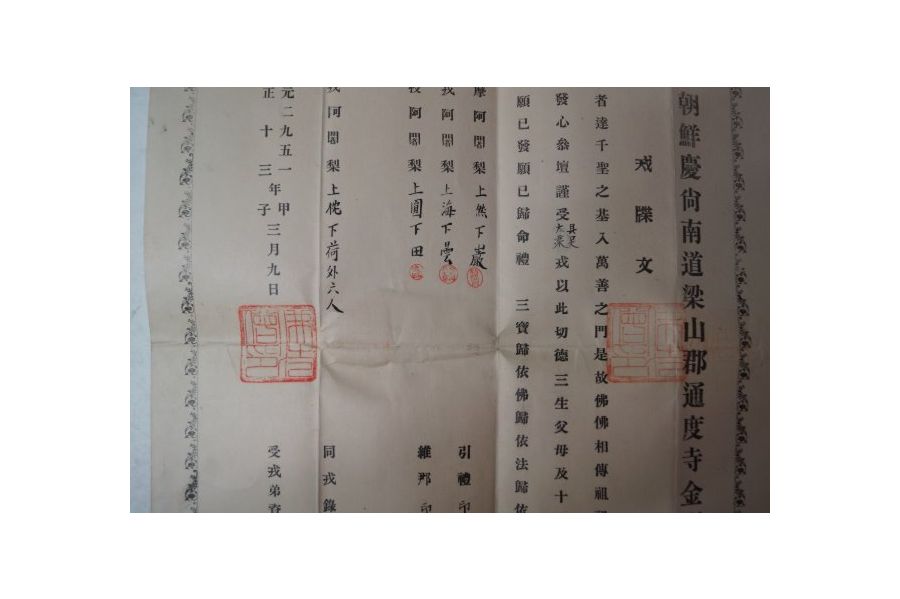 朝鮮慶尙南道梁山郡通度寺金
戒牒文
者達千聖之基入萬善之門是故佛佛相傳祖
發心叅壇謹受具足大乘戒以此切德三生父母及十
願已發願已歸命禮 三寶歸依佛歸依法歸依
摩阿闍梨上然下巖 引禮印
戒阿闍梨上海下曇
阿闍梨上圓下田 維那印
戒阿闍梨上侘下荷外六人 同戒錄
元二九五一年甲子三月九日 受戒弟資
正十三